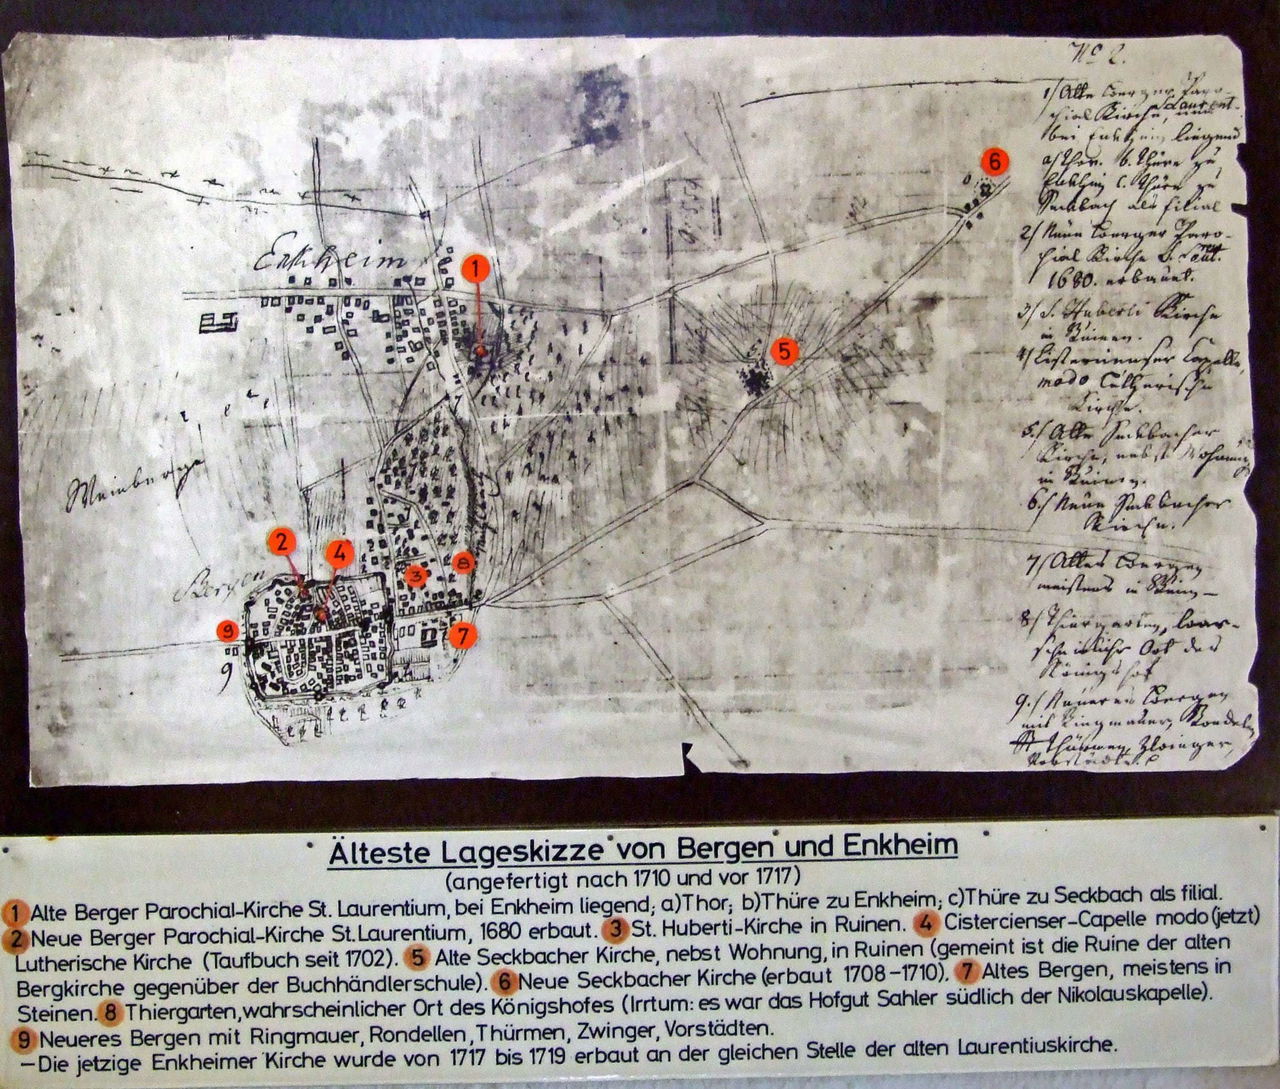 No 2.
1/ Alte Berger Paro-
chial Kirche, Laurent.
bei Enkheim liegend
a/ Thor. b. Thüre zu
Enkheim c. Thüre zu
Seckbach als filial
2/ Neue Berger Paro-
chial Kirche S. Laurent.
1680. erbauet.
3/ S. Huberti Kirche
in Ruinen.
4/ Cistercienser Capelle,
modo Lutherische
Kirche.
5/ Alte Seckbacher
Kirche, nebst Wohnung
in Ruinen.
6/ Neue Seckbacher
Kirche.
7/ Altes Bergen
meistens in Stein-
8/ Thiergarten, wahr-
scheinlicher Ort des
Königshof
9/ Neueres Bergen
mit Ringmauer, Rondeln
Thürmen, Zwinger,
Vorstädte.
6
Enkheim
1
5
Weinberge
2
4
3
8
Bergen
9
7
9
Älteste Lageskizze von Bergen und Enkheim
(angefertigt nach 1710 und vor 1717)
1 Alte Berger Parochial-Kirche St. Laurentium, bei Enkheim liegend; a)Thor; b)Thüre zu Enkheim; c)Thüre zu Seckbach als filial.
2 Neue Berger Parochial-Kirche St. Laurentium, 1680 erbaut. 3 St. Huberti-Kirche in Ruinen. 4 Cistercienser-Capelle modo (jetzt)
Lutherische Kirche (Taufbuch seit 1702). 5 Alte Seckbacher Kirche, nebst Wohnung, in Ruinen (gemeint ist die Ruine der alten
Bergkirche gegenüber der Buchhändlerschule). 6 Neue Seckbacher Kirche (erbaut 1708-1710). 7 Altes Bergen, meistens in
Steinen. 8 Thiergarten, wahrscheinlicher Ort des Königshofes (Irrtum: es war das Hofgut Sahler südlich der Nikolauskapelle).
9 Neueres Bergen mit Ringmauer, Rondellen, Thürmen, Zwinger, Vorstädten.
—Die jetzige Enkheimer Kirche wurde von 1717 bis 1719 erbaut an der gleichen Stelle der alten Laurentiuskirche.